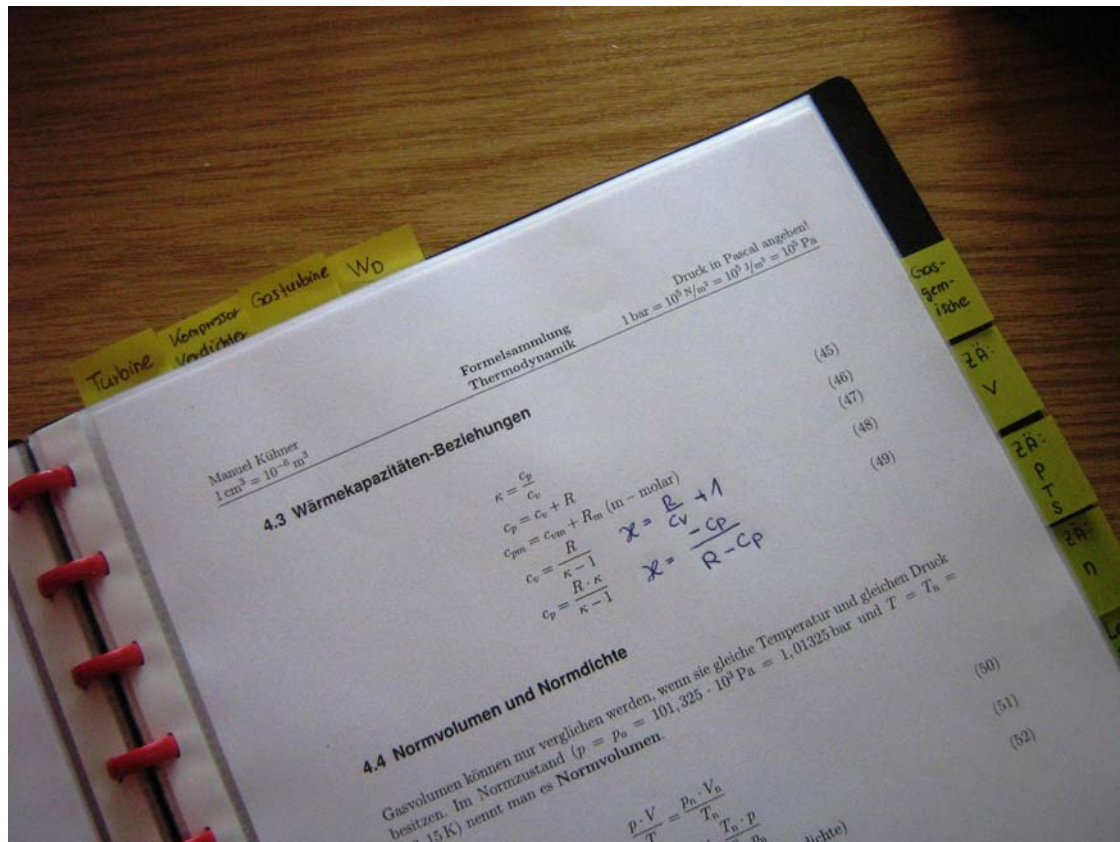 Turbine
Kompressor
Verdichter
Gasturbine
WD
Gas-
gem-
ische
ZÄ:
V
ZÄ:
P
T
S
ZÄ:
n
Manuel Kühner
1 cm³ = 10⁻⁶ m³
Formelsammlung
Thermodynamik
Druck in Pascal angeben!
1 bar = 10⁵ N/m² = 10⁵ J/m³ = 10⁵ Pa
4.3 Wärmekapazitäten-Beziehungen
κ = c_p/c_v (45)
c_p = c_v + R (46)
c_pm = c_vm + R_m (m – molar) (47)
c_v = R/(κ − 1) (48)
c_p = (R · κ)/(κ − 1) (49)
ϰ = R/cv + 1
ϰ = −cp/(R − cp)
4.4 Normvolumen und Normdichte
Gasvolumen können nur verglichen werden, wenn sie gleiche Temperatur und gleichen Druck
besitzen. Im Normzustand (p = p_n = 101,325 · 10³ Pa = 1,01325 bar und T = T_n =
15 K) nennt man es Normvolumen.
(p · V)/T = (p_n · V_n)/T_n (50)
T_n · p (51)
(52)